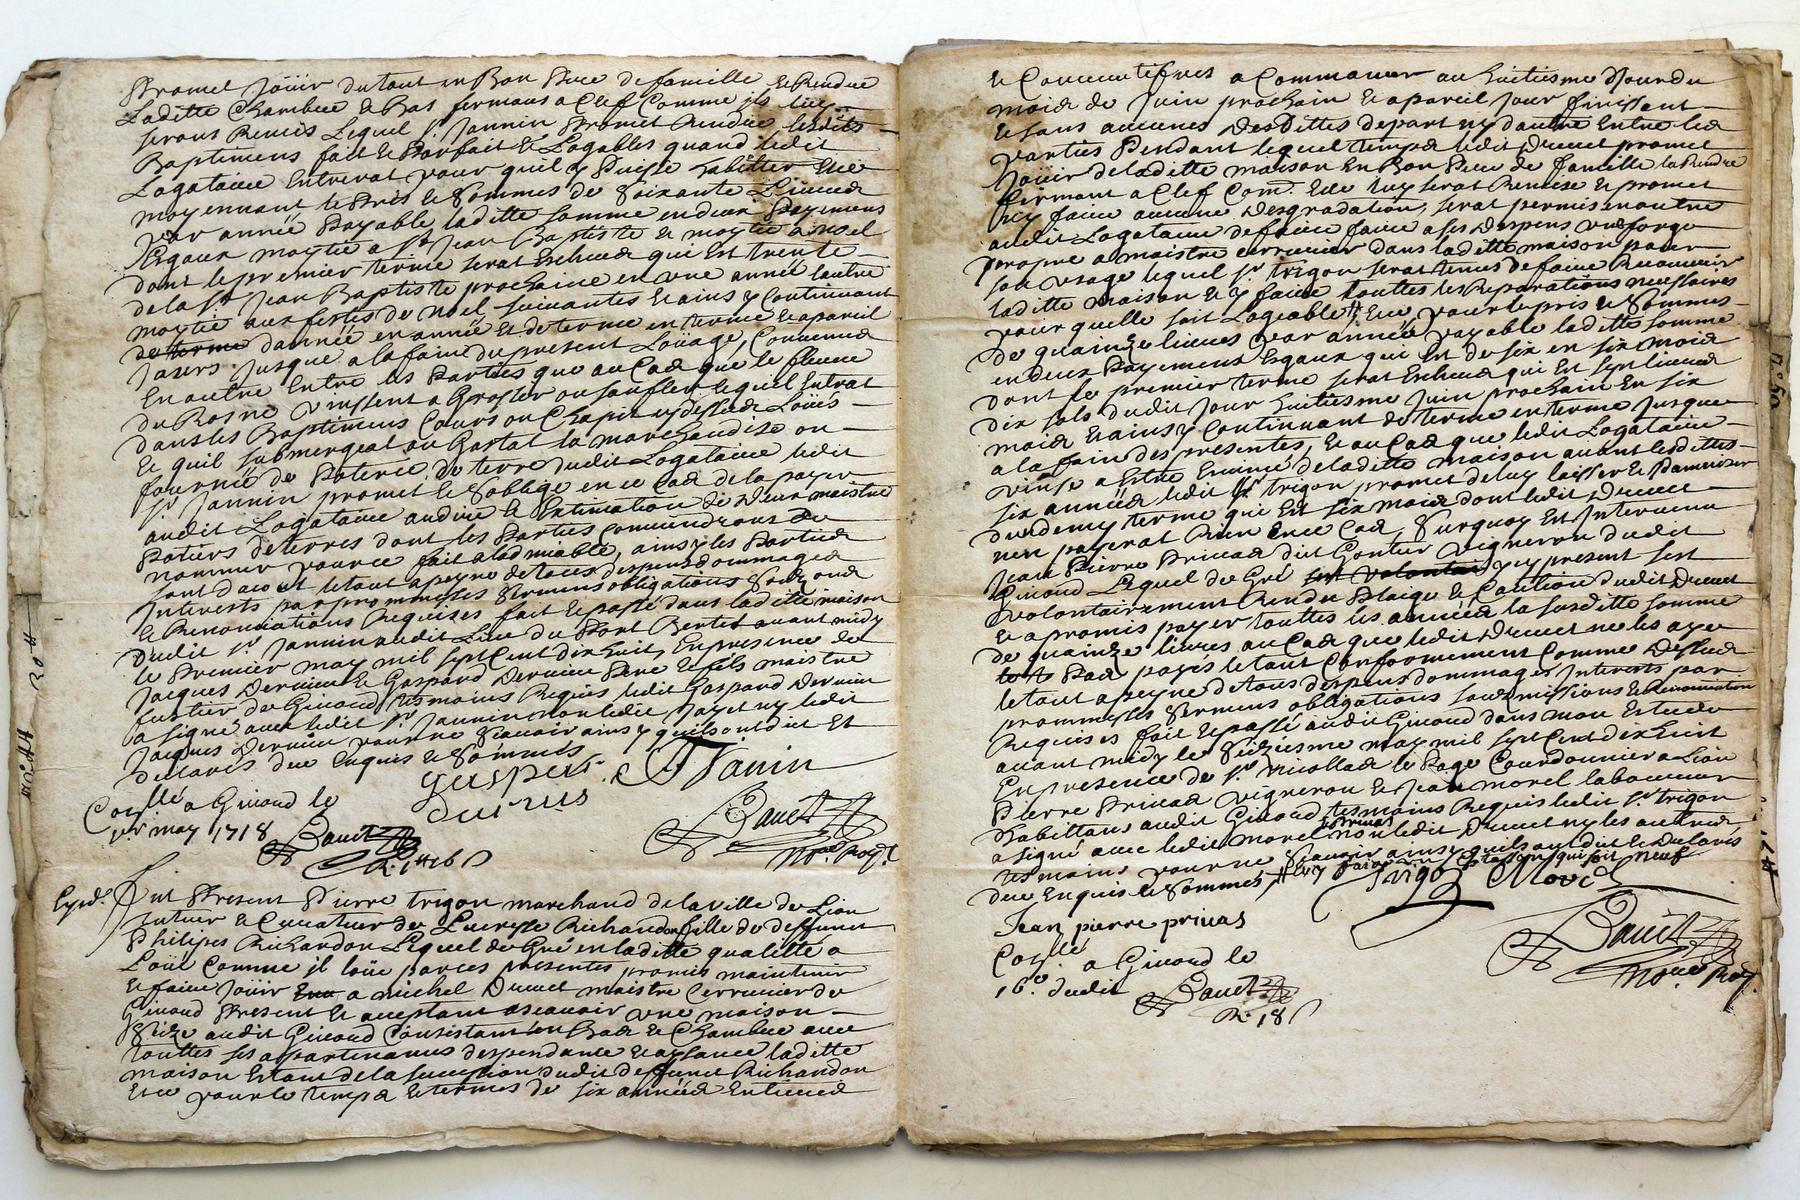 promet Joüir du tout en Bon Pere de famille et Rendre
Laditte Chambre et Bas fermans a Clef Comme ils luy
serons Remis Lequel sr. Jannin promet Rendre lesdits
Baptimens fait et Parfait et Logables quand ledit
Logataire Entrerat pour quil y Puisse habitter Ete
moyennant le Pris et Sommes de Soixante Livres
par année Payable laditte somme en deux Payemens
Egaux moytié a st. Jean Baptiste et moytié a noel
dont le premier terme serat Escheus qui Est trente
de la st. Jean Baptiste prochaine en une année lautre
moytié aux festes de noel suivantes Et ainsy Continuant
de terme dannée en année Et de terme en terme Et apareil
Jours Jusque a la fain du present Louage, Convenus
En outre Entre les Parties que au Cas que le fleuve
du Rosne vinssent a Grossir ou soufler lequel Entrat
dans les Baptimens Cours ou Chapit cy dessus Loüés
Et quil submergeat ou Gastat la marchandise ou
fournée de Poterie de terre dudit Logataire ledit
sr. Jannin promet et Soblige en ce Cas de la payer
audit Logataire au dire et Estimation de deux maistre
Potiers de terres dont les Parties Conviendrons de
nommer pour ce fait a lamiable, ainsy les Parties
sont dacort le tout a peyne de tous despens dommages
Interests par prommesses sermens obligations
et Renonciations Requises fait et passé dans laditte maison
dudit sr. Jannin audit Lieu du Port Bertet avant midy
le Premier may mil sept Cent dix huit, En presence de
Jacques Dervieu et Gaspard Dervieu Pere et fils maistre
fustier de Givord tesmoins Requis ledit Gaspard Dervieu
a signé avec ledit sr. Jannin non ledit Jayet ny ledit
Jacques Dervieu pour ne Scavoir ainsy quils ont dit Et
declarés due Enquis et Sommés
gaspart Jannin
dervieus
Con.llé a Givord le
p.er may 1718 Bauet
Bauet
no.re Roy.l
Exped. Fut Present Pierre trigon marchand de la ville de Lion
tuteur et Curateur de Lucresse Richandon fille de deffunt
Philipes Richandon Lequel de Gré en laditte qualitté a
Loüé Comme il loüe par ces presentes promis maintenir
et faire Joüir a michel Drevet maistre serrurier de
Givord Present Et acceptant ascavoir une maison
Size audit Givord Consistant en Bas et Chambre avec
touttes ses appartenances despendance et aysance laditte
maison Estant de la succession dudit deffunct Richandon
Et ce pour le temps et termes de six années Entieres
et Consecutifves a Commancer au huitiesme Jour du
mois de Juin prochain et apareil Jour finissant
Et sans aucunes Desdittes de part ny dautre Entre les
parties Pendant lequel temps ledit Drevet promet
Joüir de laditte maison En Bon Pere de famille la Rendre
fermant a Clef Com. Elle luy serat Remise et promet
ny faire aucune Desgradation, serat permis en outre
audit Logataire de faire faire a ses Despens une forge
propre a maistre serrurier dans laditte maison pour
son usage lequel sr. trigon serat tenus de faire Recouvrir
laditte maison et y faire touttes les Reparations nessaires
pour quelle soit Logeable # Et ce pour le pris et Sommes
de quainze livres par année payable laditte somme
en deux Payement Egaux qui Est de six en six mois
dont le premier terme serat Escheus qui Est sept livres
dix sols dudit Jour huitiesme Juin prochain En six
mois Et ainsy Continuant de terme en terme Jusque
a la fain des presentes, Et au Cas que ledit Logataire
vinse a Estre Evincé de laditte maison avant lesdittes
six années ledit sr. trigon promet de luy laisser
dun demy terme qui Est six mois dont ledit Drevet
nen payerat Rien En ce Cas, Surquoy Est Intervenu
Jean Pierre Privas dit Pontus vigneron dudit
Givord Lequel de Gré cy present sest
volontairement Rendu Plaige et Caution dudit Drevet
Et a promis payer touttes les années la susditte somme
de quainze livres au Cas que ledit Drevet ne les aye
Pas payés le tout Conformement Comme Dessus
le tout a peyne de tous despens dommages Interests par
prommesses sermens obligations soubzmissions et Renonciation
Requises fait et passé audit Givord dans mon Estude
avant midy le Seiziesme may mil sept Cent dix huit
En presence de sr. nicollas le Page Courdonnier a Lion
Pierre Privas vigneron et Jean morel laboureur
habittans audit Givord tesmoins Requis ledit sr. trigon
a signé avec ledit morel et Privas non ledit Drevet ny les autres
tesmoins pour ne Scavoir ainsy quils ont dit et Declarés
due Enquis et Sommés #
trigon Morel
Jean pierre privas
Con.llé
a Givord le
16e. dudit Bauet
R. 18 s
Bauet
no.re Roy.